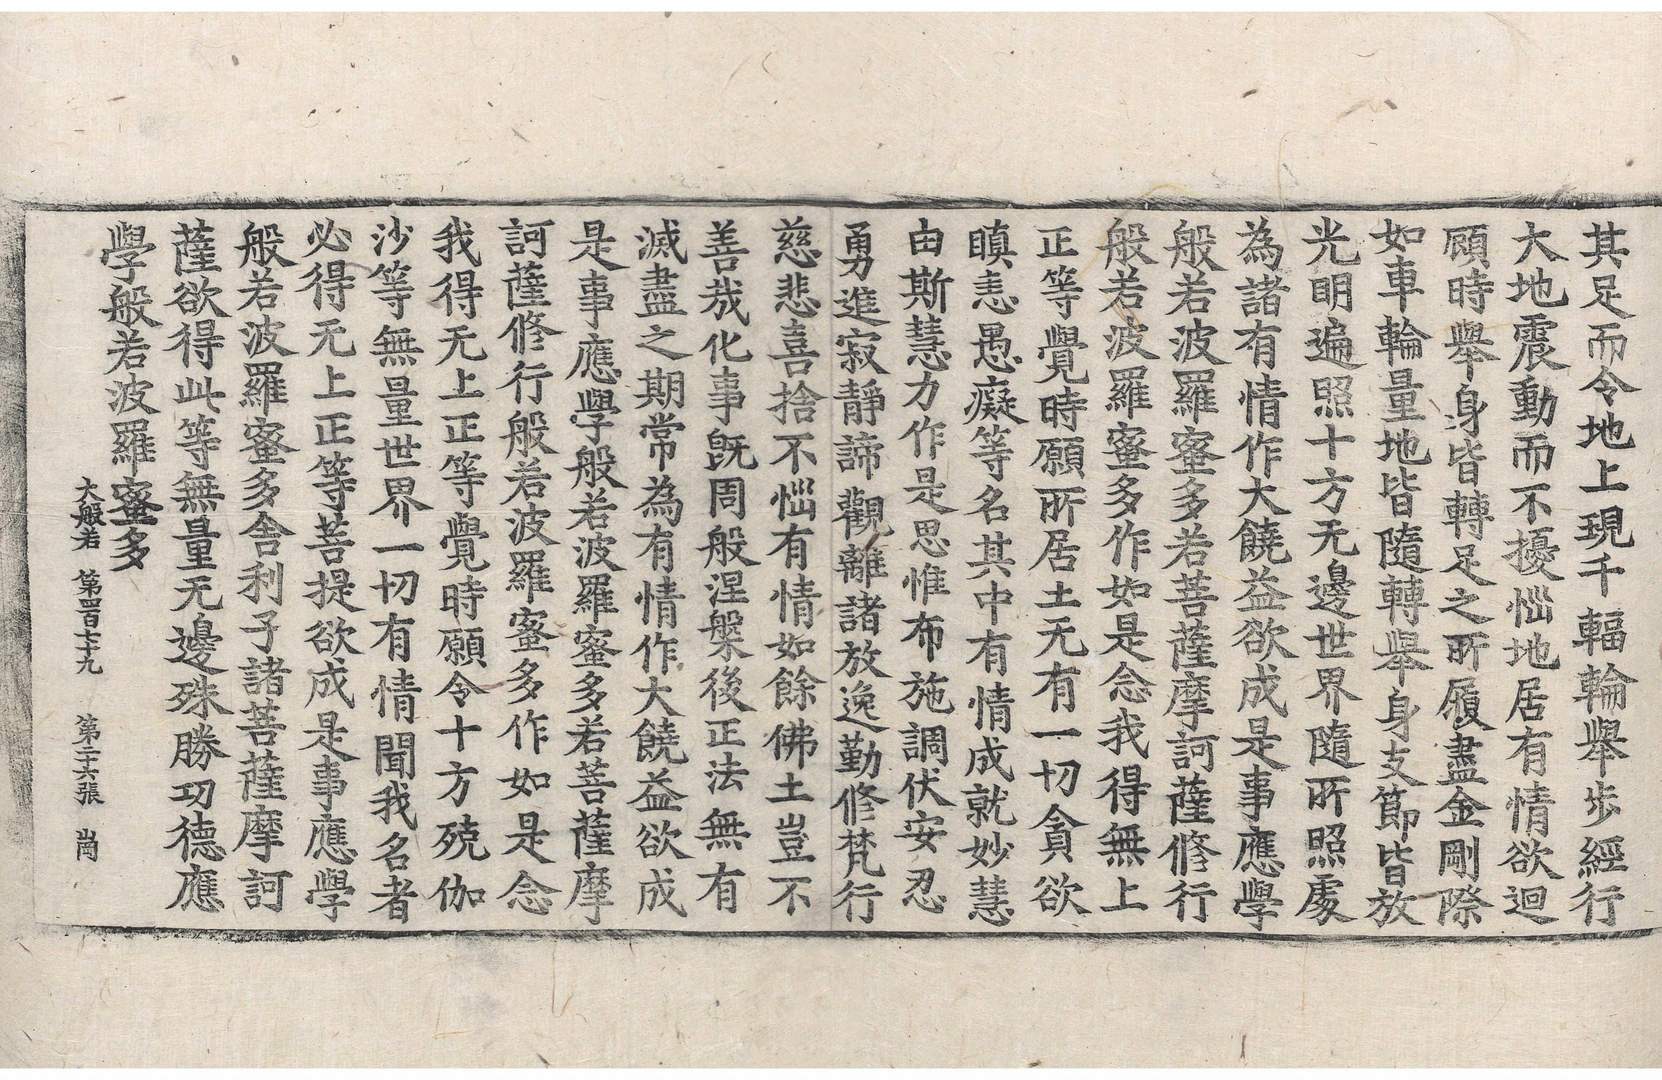 其足而令地上現千輻輪舉步經行
大地震動而不擾惱地居有情欲迴
顧時舉身皆轉足之所履盡金剛際
如車輪量地皆隨轉舉身支節皆放
光明遍照十方无邊世界隨所照處
為諸有情作大饒益欲成是事應學
般若波羅蜜多若菩薩摩訶薩修行
般若波羅蜜多作如是念我得無上
正等覺時願所居土无有一切貪欲
瞋恚愚癡等名其中有情成就妙慧
由斯慧力作是思惟布施調伏安忍
勇進寂靜諦觀離諸放逸勤修梵行
慈悲喜捨不惱有情如餘佛土豈不
善哉化事既周般涅槃後正法無有
滅盡之期常為有情作大饒益欲成
是事應學般若波羅蜜多若菩薩摩
訶薩修行般若波羅蜜多作如是念
我得无上正等覺時願令十方殑伽
沙等無量世界一切有情聞我名者
必得无上正等菩提欲成是事應學
般若波羅蜜多舍利子諸菩薩摩訶
薩欲得此等無量无邊殊勝功德應
學般若波羅蜜多
大般若 第四百七十九 第二十六張 崗